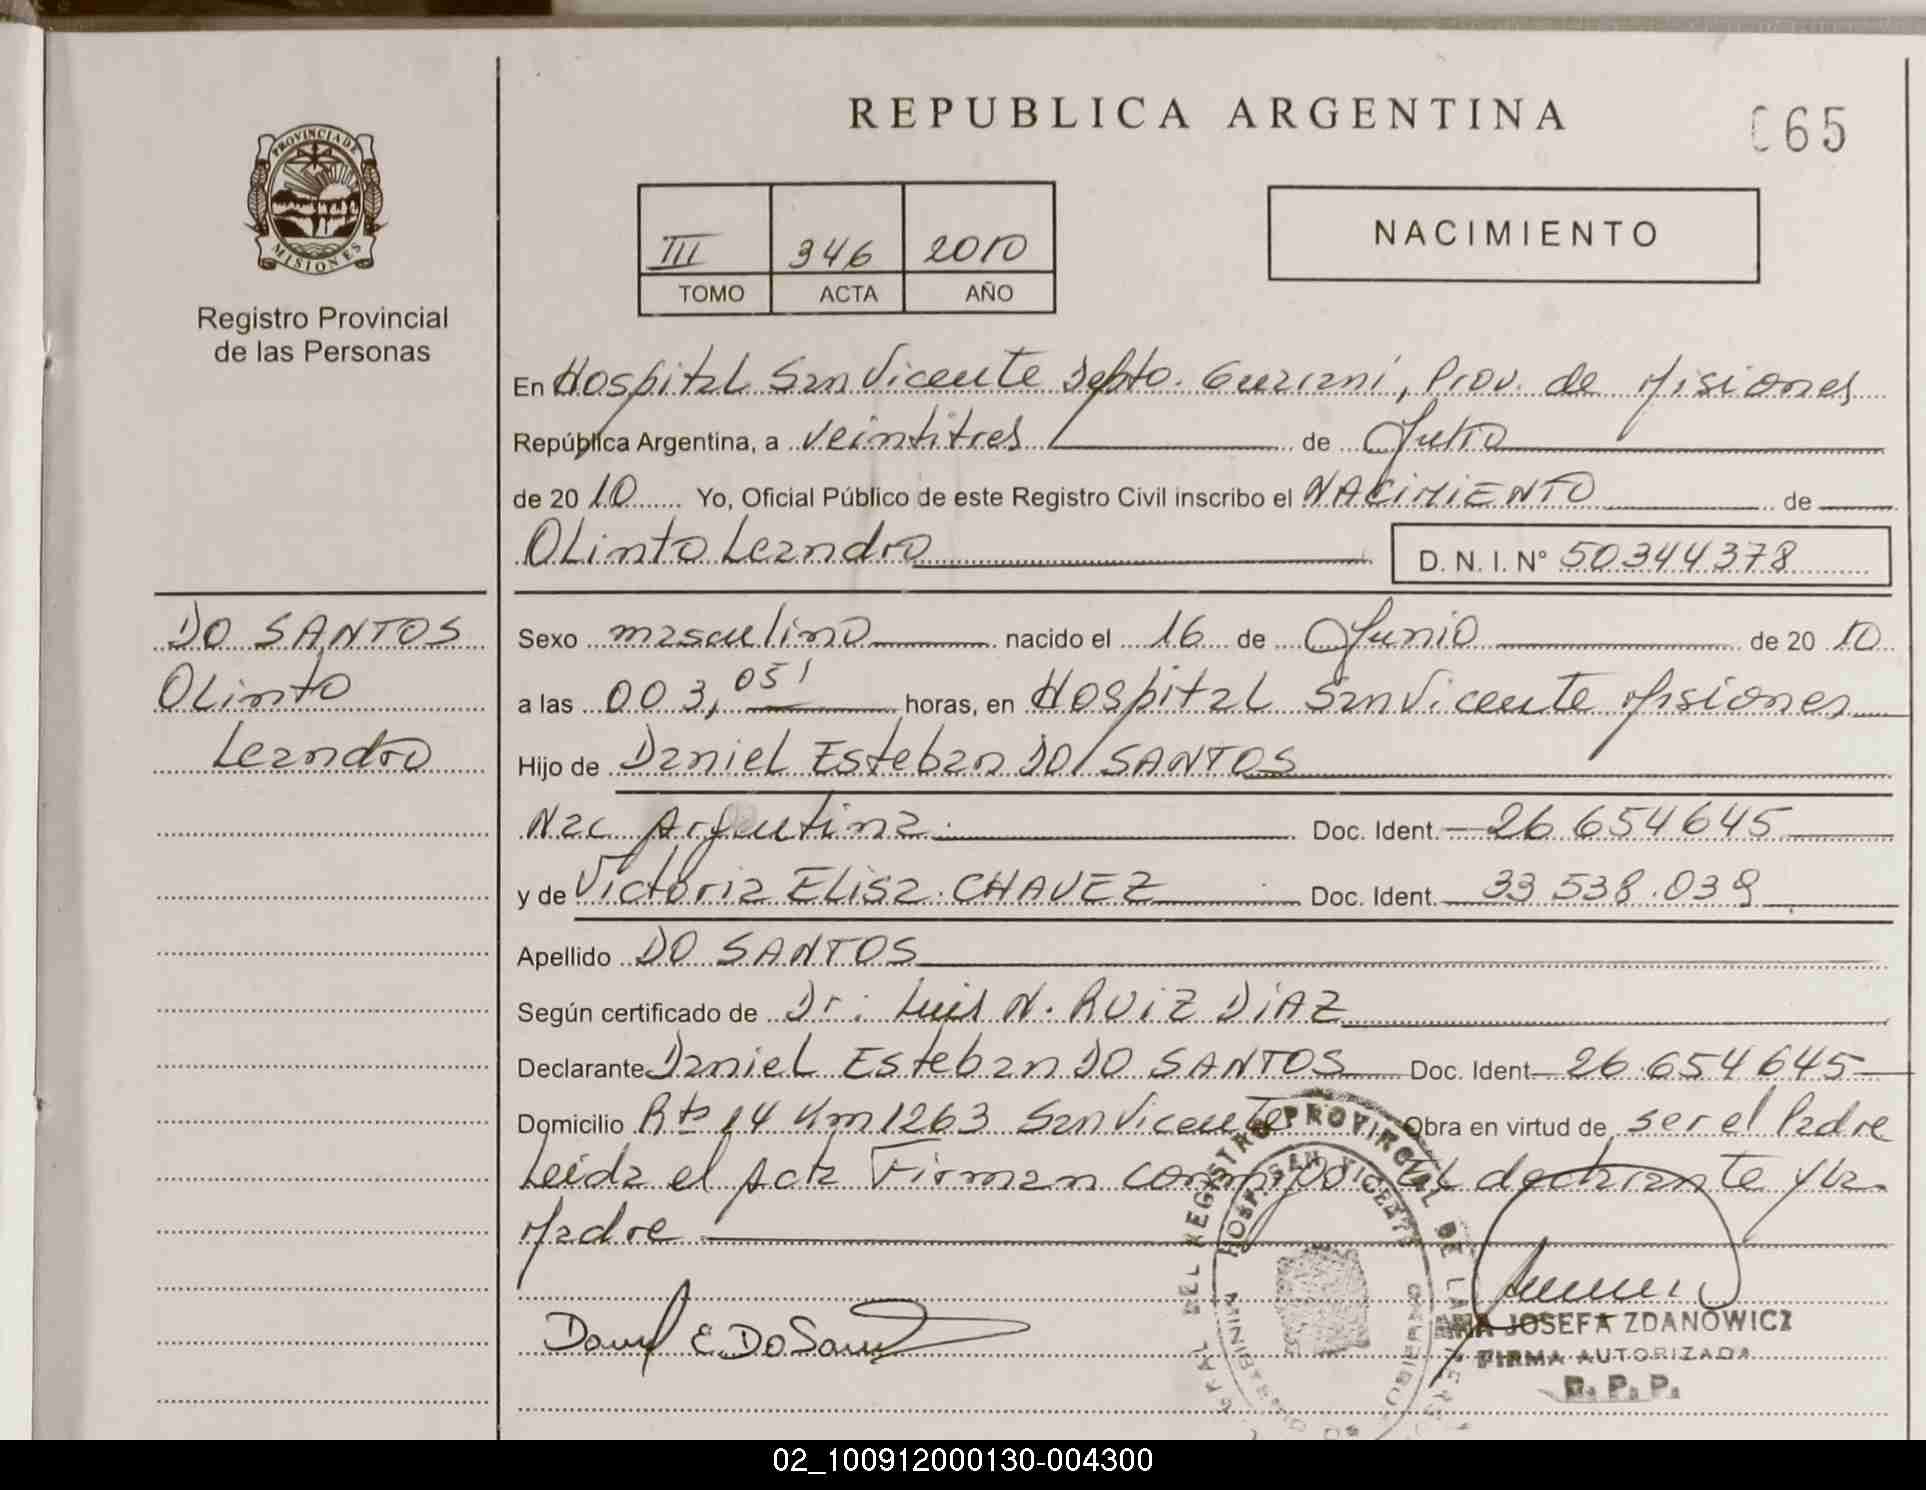 REPUBLICA ARGENTINA
065
PROVINCIA DE
MISIONES
Registro Provincial
de las Personas
III 346 2010
TOMO ACTA AÑO
NACIMIENTO
En Hospital San Vicente Depto. Guarani, Prov. de Misiones
República Argentina, a veintitres de Julio
de 20 10 Yo, Oficial Público de este Registro Civil inscribo el NACIMIENTO de
Olinto Leandro D. N. I. Nº 50344378
DO SANTOS
Olinto
Leandro
Sexo masculino nacido el 16 de Junio de 20 10
a las 003,05' horas, en Hospital San Vicente Misiones
Hijo de Daniel Esteban DO SANTOS
Nac Argentina Doc. Ident. 26 654 645
y de Victoria Elisa CHAVEZ Doc. Ident. 33 538.039
Apellido DO SANTOS
Según certificado de Dr: Luis N. RUIZ DIAZ
Declarante Daniel Esteban DO SANTOS Doc. Ident 26.654 645
Domicilio Rta 14 Km 1263 San Vicente Obra en virtud de ser el Padre
Leida el Acta Firman conmigo El declarante y la
Madre
Daniel E. Do Santos
REGISTRO PROVINCIAL DE LA
HOSP. SAN VICENTE
JOSEFA ZDANOWICZ
FIRMA AUTORIZADA
R. P. P.
02_100912000130-004300